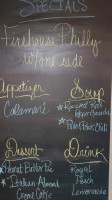 Specials
Firehouse Philly
w/one side
Appetizer
Calamari
Soup
Roasted Red
Pepper Gouda
Dessert
Peanut Butter Pie
Italian Almond
Drink
Royal
Peach
Lemonade